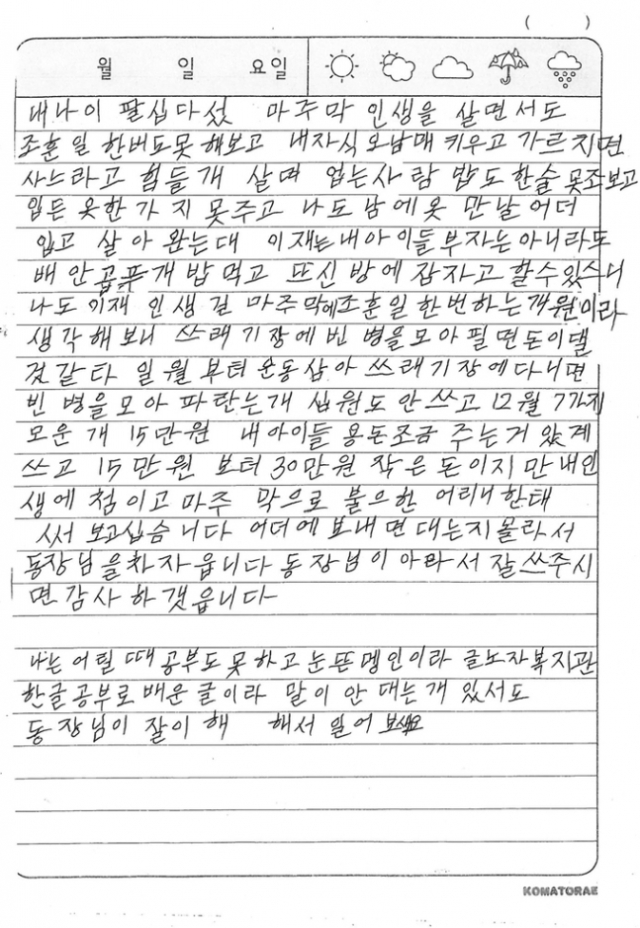 ( )
월 일 요일
내나이 팔십다섯 마주막 인생을 살면서도
조훈일 한버도못 해보고 내자식 오남매 키우고 가르치면
사느라고 힘들개 살며 업는사람 밥도한술못조보고
입든 옷한가지 못주고 나도남에옷 만날어더
입고 살아 완는대 이재는내아이들부자는아니라도
배안곱푸개 밥먹고 뜨신 방에 잠자고 할수있스니
나도 이재 인생길 마주막에조훈일한번하는개원이라
생각해보니 쓰래기장에빈병을모아필면돈이댈
것같타 일월부터운동삼아쓰래기장에다니면
빈병을모아파란는개 십원도안쓰고12월7가지
모운개 15만원 내아이들용돈조금 주는거 았계
쓰고 15만원 보터30만원 작은돈이지만내인
생에 첨이고마주 막으로 불으한 어리니한태
써 보고십슴니다 어더에보내면대는지몰라서
동장님을차자읍니다동장님이아라서잘쓰주시
면감사하갯읍니다
나는어릴때공부도못하고눈뜬멩인이라글노자복지관
한글공부로배운글이라 말이안대는개있서도
동장님이잘이해 해서일어보새요
KOMATORAE